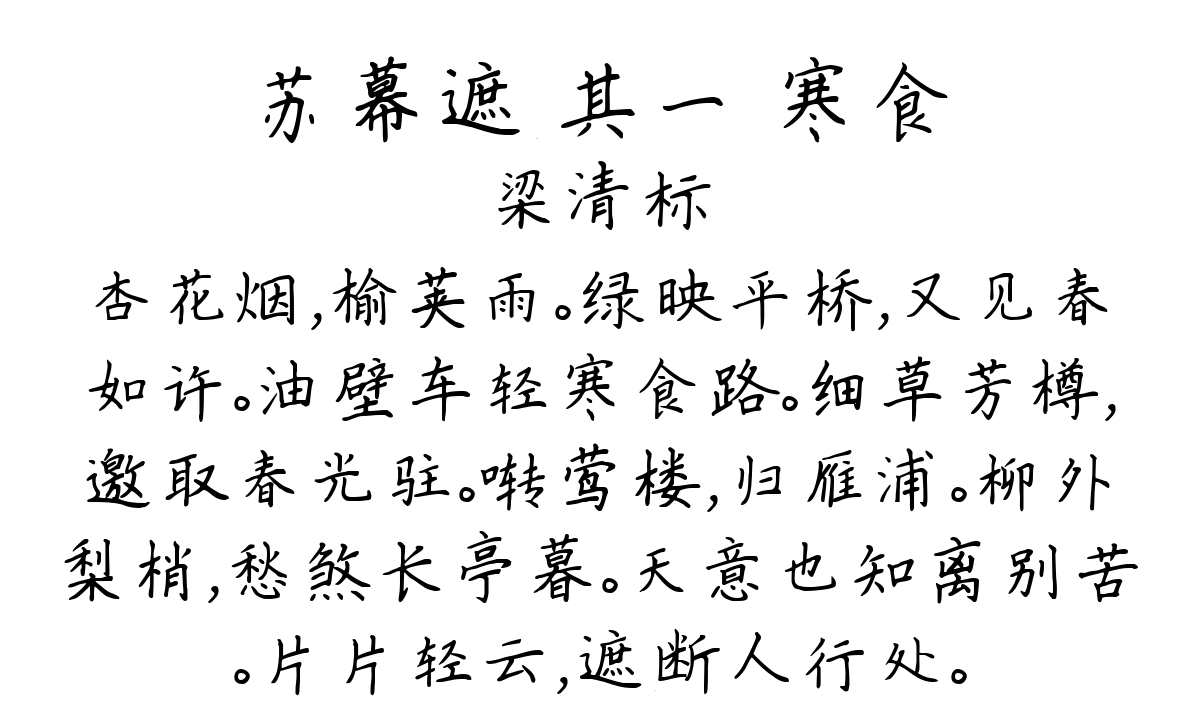 苏幕遮 其一 寒食
梁清标
杏花烟,榆荚雨。绿映平桥,又见春
如许。油壁车轻寒食路。细草芳樽,
邀取春光驻。啭莺楼,归雁浦。柳外
梨梢,愁煞长亭暮。天意也知离别苦
。片片轻云,遮断人行处。